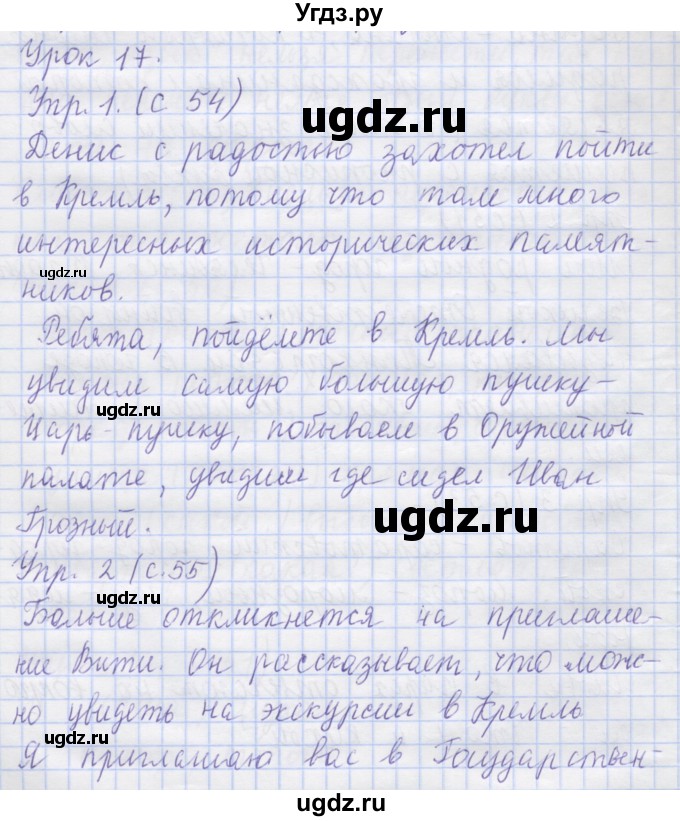 Угдз.ру
Урок 17.
Упр. 1. (с 54)
ugdz.ru
Денис с радостью захотел пойти
в Кремль, потому что там много
интересных исторических памят-
ugdz.ru
ников.
Ребята, пойдёмте в Кремль. Мы
увидим самую большую пушку-
ugdz.ru
Царь-пушку, побываем в Оружейной
палате, увидим где сидел Иван
Грозный.
ugdz.ru
Упр. 2 (с.55)
Больше откликнется на приглаше-
ние Вити. Он рассказывает, что мож-
но увидеть на экскурсии в Кремль
ugdz.ru
Я приглашаю вас в Государствен-
ugdz.ru